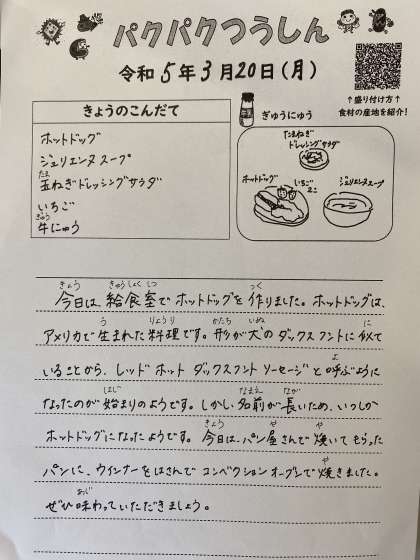 パクパクつうしん
令和5年3月20日(月)
↑盛り付け方↑
食材の産地を紹介!
きょうのこんだて
ホットドッグ
ジュリエンヌスープ
玉ねぎドレッシングサラダ
いちご
牛にゅう
ぎゅうにゅう
たまねぎ
ドレッシングサラダ
ホットドッグ
いちご
2こ
ジュリエンヌスープ
今日は給食室でホットドッグを作りました。ホットドッグは、
アメリカで生まれた料理です。形が犬のダックスフントに似て
いることから、レッド ホット ダックスフント ソーセージと呼ぶように
なったのが始まりのようです。しかし、名前が長いため、いつしか
ホットドッグになったようです。今日は、パン屋さんで焼いてもらった
パンに、ウインナーをはさんでコンベクションオーブンで焼きました。
ぜひ味わっていただきましょう。